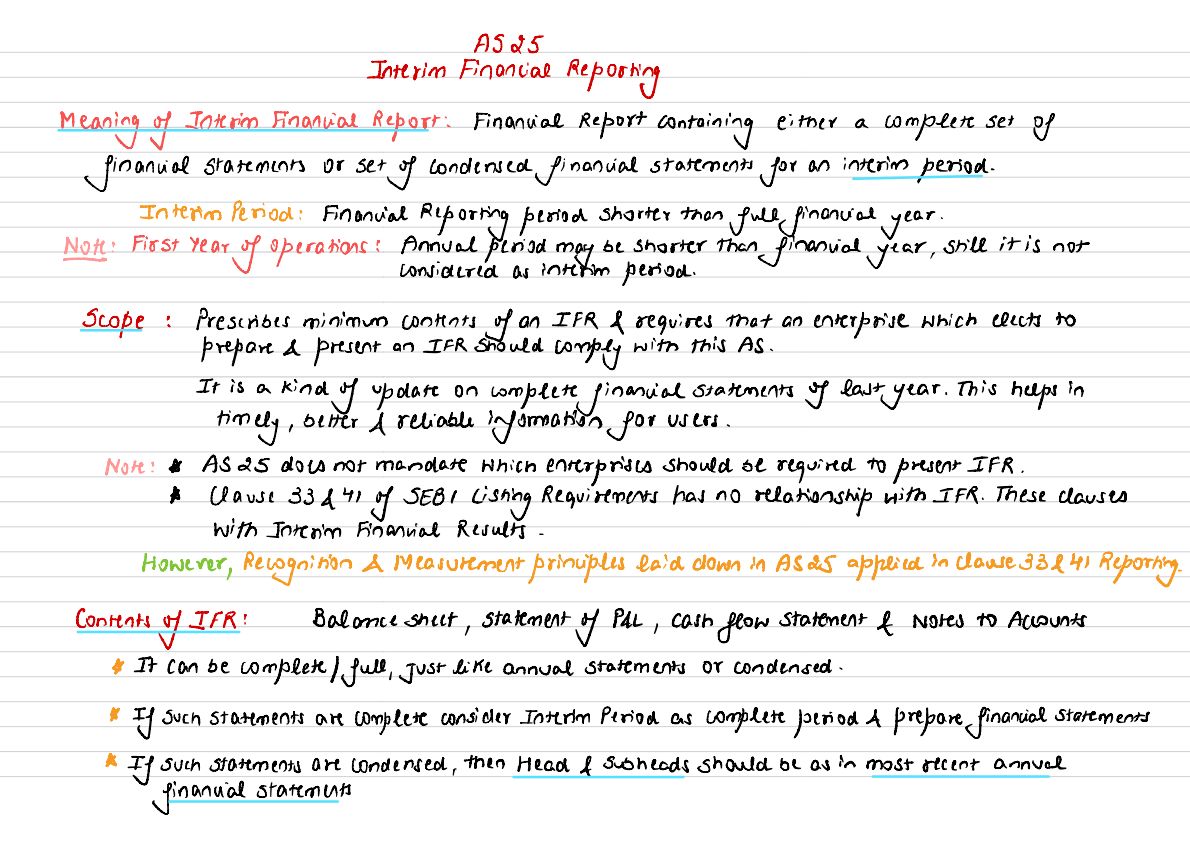 AS 25
Interim Financial Reporting
Meaning of Interim Financial Report: Financial Report containing either a complete set of
financial statements or set of condensed financial statements for an interim period.
Interim Period: Financial Reporting period shorter than full financial year.
Note: First Year of operations: Annual period may be shorter than financial year, still it is not
considered as interim period.
Scope : Prescribes minimum contents of an IFR & requires that an enterprise which elects to
prepare & present an IFR should comply with this AS.
It is a kind of update on complete financial statements of last year. This helps in
timely, better & reliable information for users.
Note: * AS 25 does not mandate which enterprises should be required to present IFR.
* Clause 33 & 41 of SEBI Listing Requirements has no relationship with IFR. These clauses
with Interim Financial Results.
However, Recognition & Measurement principles laid down in AS 25 applied in Clause 33 & 41 Reporting.
Contents of IFR: Balance sheet, statement of P&L, cash flow statement & Notes to Accounts
* It can be complete/full, just like annual statements or condensed.
* If such statements are complete consider Interim Period as complete period & prepare financial statements
* If such statements are condensed, then Head & Subheads should be as in most recent annual
financial statements